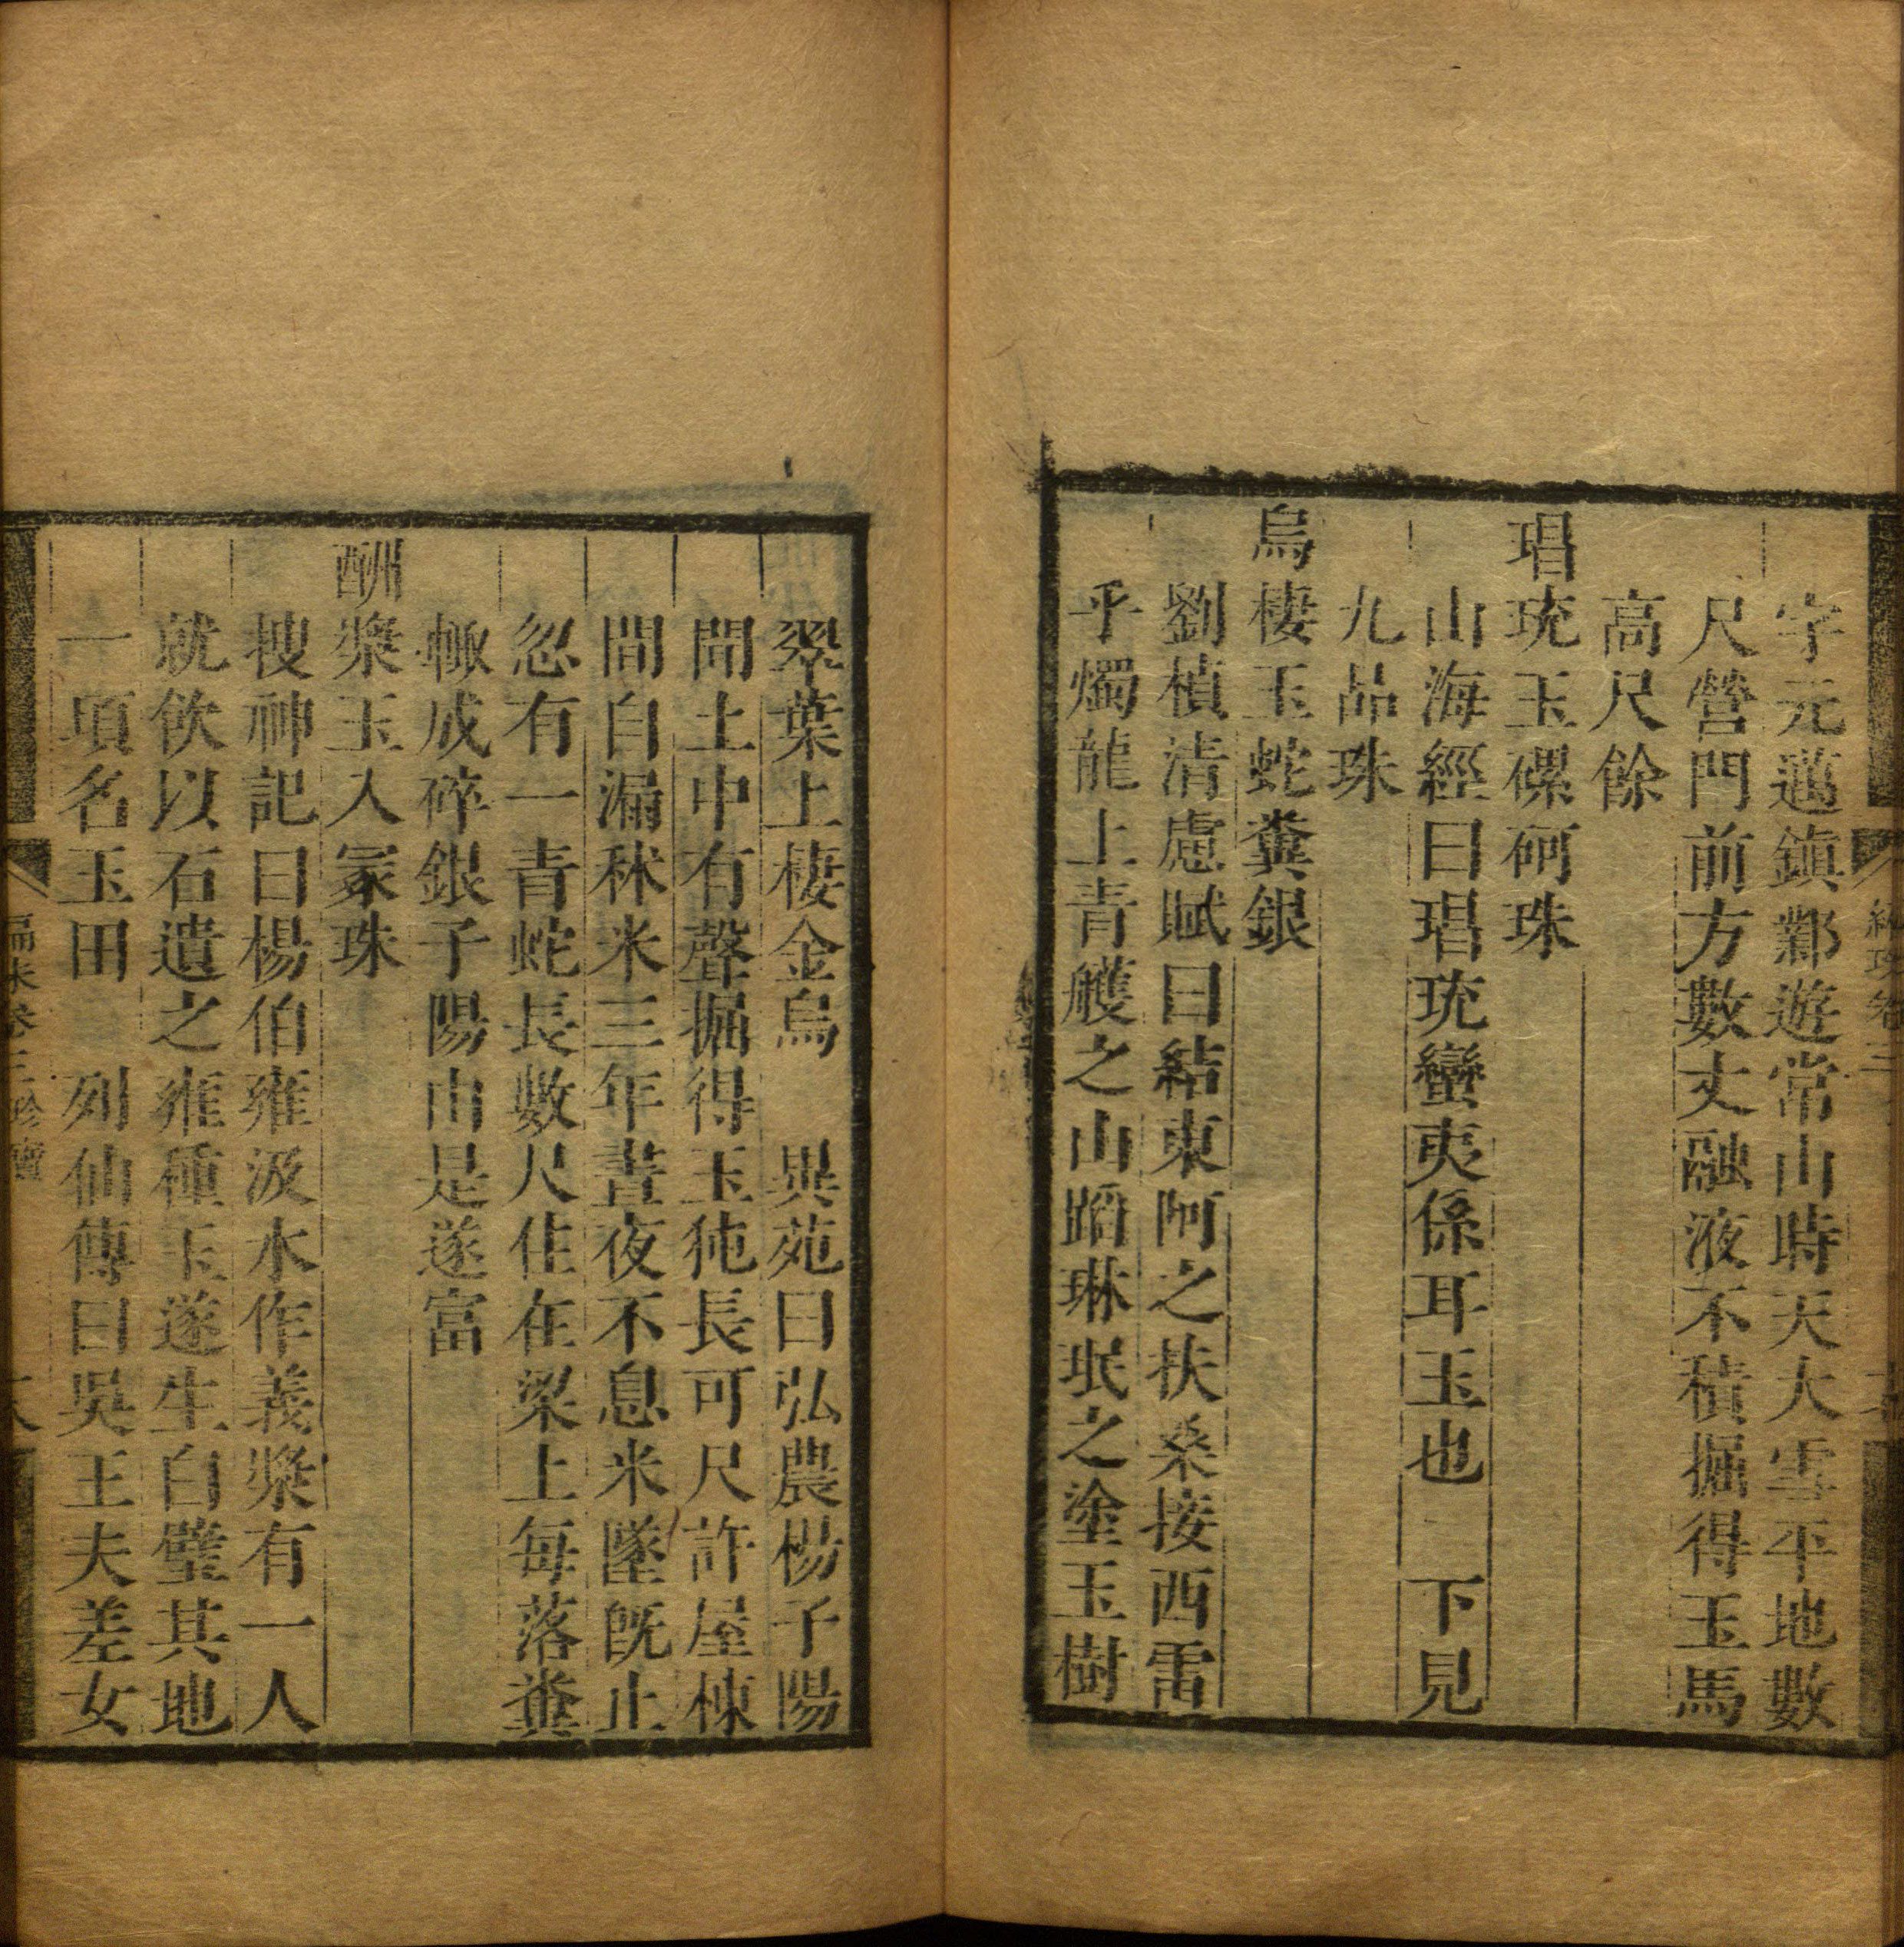 字元邁鎮鄴遊常山時天大雪平地數
尺營門前方數丈融液不積掘得玉馬
高尺餘
琩珫玉磥砢珠
山海經曰琩珫蠻夷係耳玉也　下見
九品珠
烏棲玉蛇糞銀
劉楨清慮賦曰結東阿之扶桑接西雷
乎燭龍上青雘之山蹈琳珉之塗玉樹
翠葉上棲金烏　異苑曰弘農楊子陽
聞土中有聲掘得玉㹠長可尺許屋棟
間自漏秫米三年晝夜不息米墜既止
忽有一青蛇長數尺住在梁上每落糞
輙成碎銀子陽由是遂富
酬漿玉入冢珠
搜神記曰楊伯雍汲水作義漿有一人
就飲以石遺之雍種玉遂生白璧其地
一頃名玉田　列仙傳曰吳王夫差女
編珠卷三珍寶